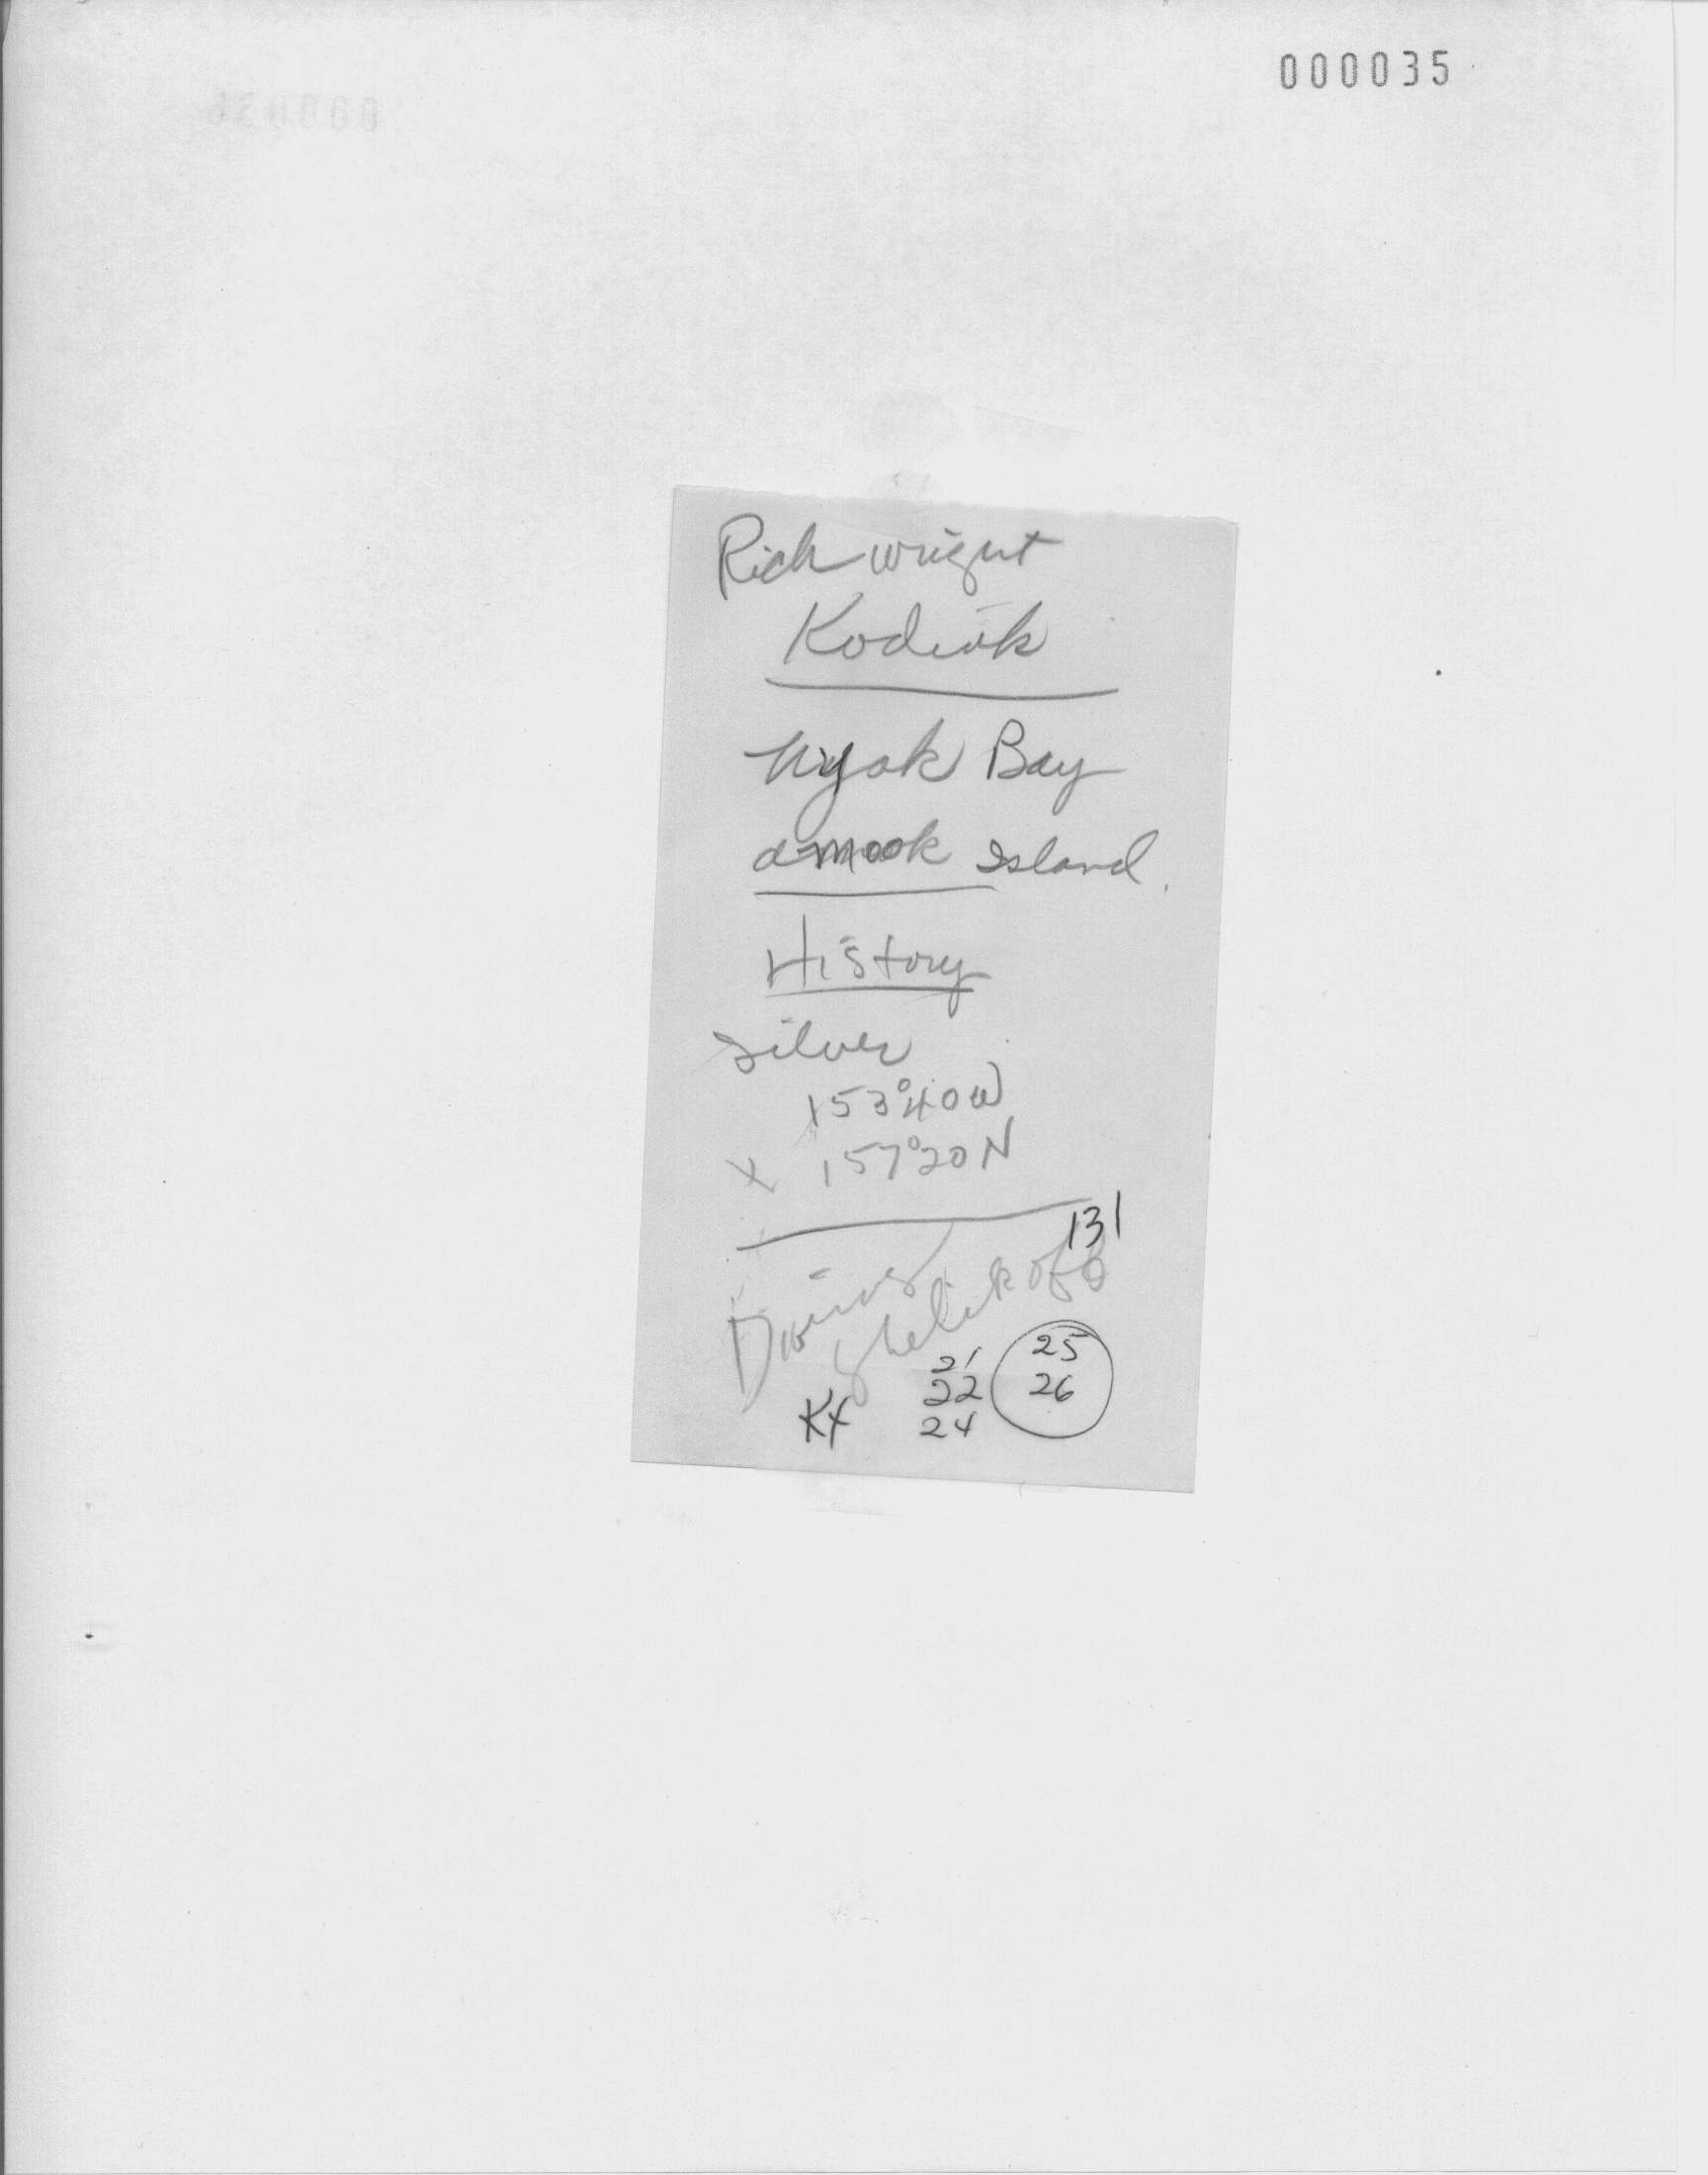 000035
Rich Wright
Kodiak
Uyak Bay
amook Island.
History
Silver
153°40W
X 157°20N
131
Shelikoff
21
22
24
25
26
KX